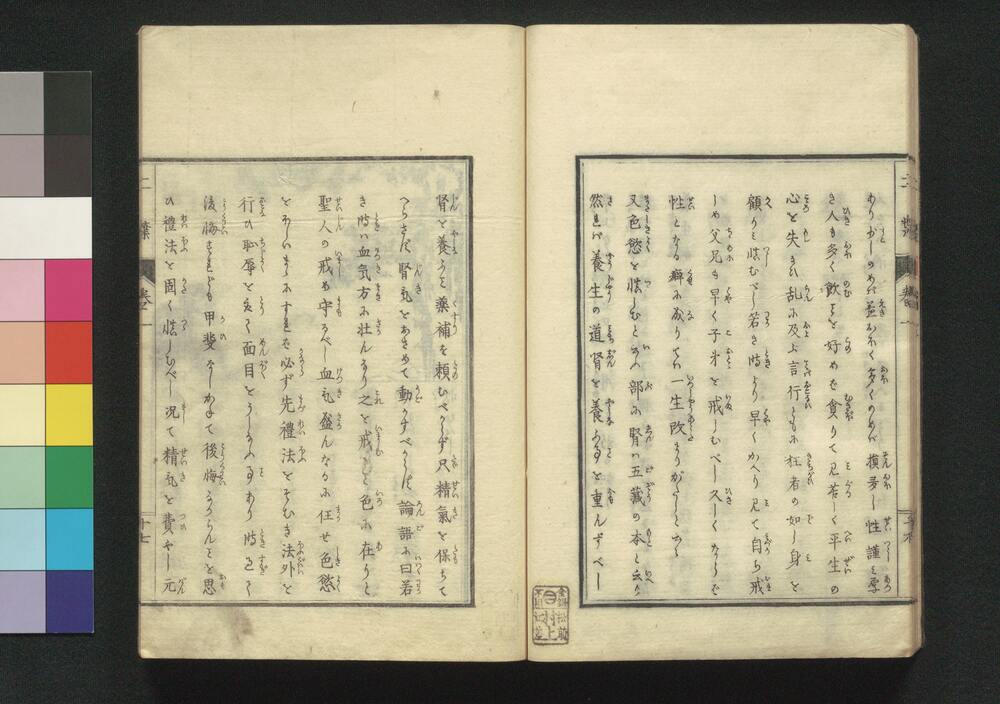 ありおしのめば益おほく多くのめば損多し性謹ミ厚
き人も多く飲ミを好めば貪りて見苦しく平生の
心を失ひ乱に及ふ言行ともに狂者の如し身を
顧りミ慎むべし若き時より早くかへり見て自ら戒
しめ父兄も早く子弟を戒しむべし久しくならへば
性となる癖に成りては一生改まりがたしとなん
又色慾を慎しむとの部に腎は五藏の本と云り
然れば養生の道腎を養ふ事を重んずべし
腎を養ふに薬補を頼むべからず只精氣を保ちて
へらさず腎氣をおさめて動かすべからず論語に曰若
き時は血気方に壮んなり之を戒しむ色に在りと
聖人の戒め守るべし血気盛んなるに任せ色慾
をほしいまゝにすれば必ず先禮法をそむき法外を
行ひ恥辱を受て面目をうしなふ事あり時過て
後悔すれども甲斐なしかねて後悔なからんを思
ひ禮法を固く慎しむべし况て精氣を費やし元
十七